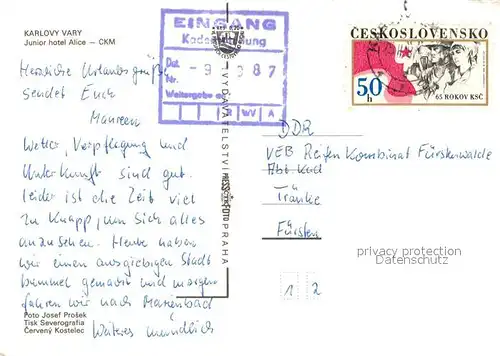 KARLOVY VARY
Junior hotel Alice – CKM
Herzliche Urlaubsgrüße
sendet Euch
Maureen
Wetter, Verpflegung und
Unterkunft sind gut.
leider ist die Zeit viel
zu knapp, um sich alles
anzusehen. Heute haben
wir einen ausgiebigen Stadt
bummel gemacht und morgen
fahren wir nach Marienbad
Weiteres mündlich
Foto Josef Prošek
Tisk Severografia
Červený Kostelec
VYDAVATELSTVÍ PRESSFOTO PRAHA
EINGANG
Dat. 9 87
Nr.
Weitergabe an
WV A
ČESKOSLOVENSKO
50 h
65 ROKOV KSČ
DDR
VEB Reifen Kombinat Fürstenwalde
Abt Kad
Tränke
Fürsten
1 2
privacy protection
AnsichtskartenCenter